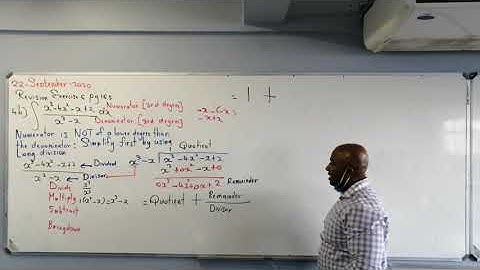 22-September-2020
Revision Exercise 6 pg 165
4b) ∫ x³-4x²-x+2 dx Numerator [3rd degree]
x³-x Denominator [3rd degree]
Numerator is NOT of a lower degree than
the denominator: Simplify first by using
Long division
x³-4x²-x+2 ← Dividend
x³-x ← Divisor
Quotient
1
x³-x | x³-4x²-x+2
x³+0x²-x+0
0x³-4x²+0x+2 Remainder
Divide x³/x³
Multiply 1(x³-x)=x³-x
Subtract
= Quotient + Remainder
Divisor
= 1 +
-x-(-x)
-x+x